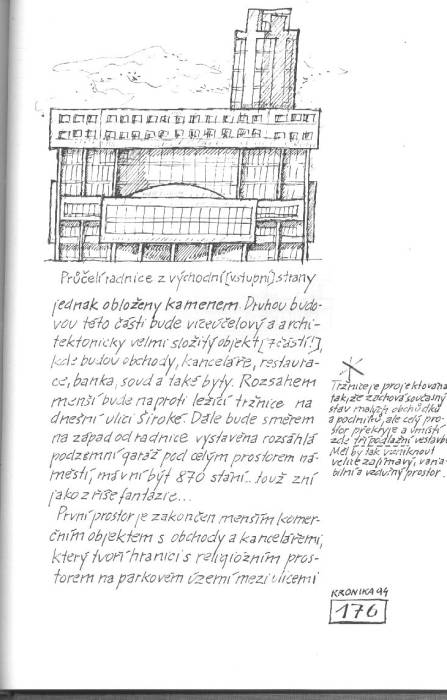 Průčelí radnice z východní [vstupní] strany
jednak obloženy kamenem. Druhou budo-
vou této části bude víceúčelový a archi-
tektonicky velmi složitý objekt [7 částí!],
kde budou obchody, kanceláře, restaura-
ce, banka, soud a také byty. Rozsahem
menší bude naproti ležící tržnice na
dnešní ulici Široké. Dále bude směrem
na západ od radnice vystavěna rozsáhlá
podzemní garáž pod celým prostorem ná-
městí, má v ní být 870 stání... to už zní
jako z říše fantázie...
První prostor je zakončen menším komer-
čním objektem s obchody a kancelářemi,
který tvoří hranici s religiózním pros-
torem na parkovém území mezi ulicemi
Tržnice je projektována
tak, že zachová současný
stav malých obchůdků
a podniků, ale celý pro-
stor překryje a umístí
zde třípodlažní vestavbu
Měl by tak vzniknout
velice zajímavý, varia-
bilní a vzdušný prostor.
KRONIKA 94
176